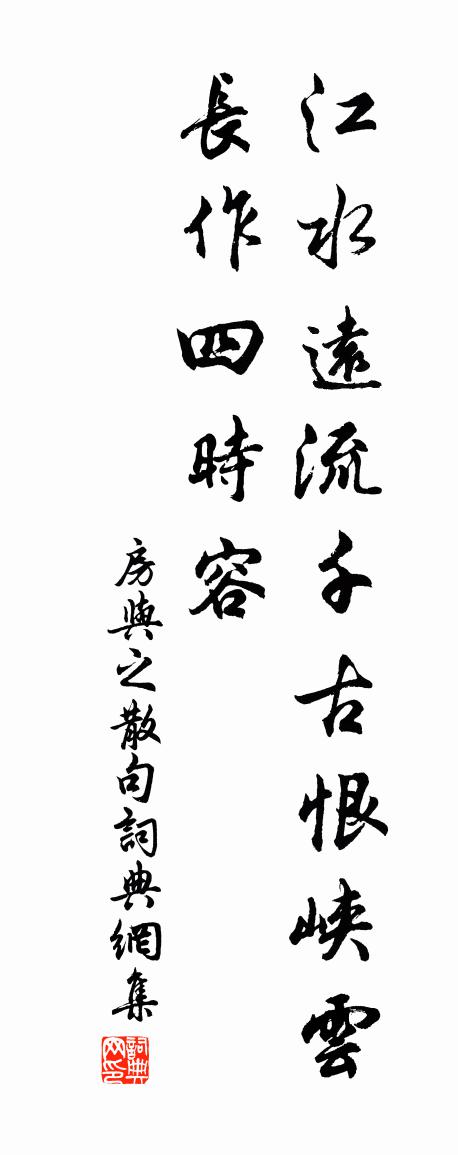 江水遠流千古恨峽雲
長作四時容
房與之散句詞典網集
詞典网印